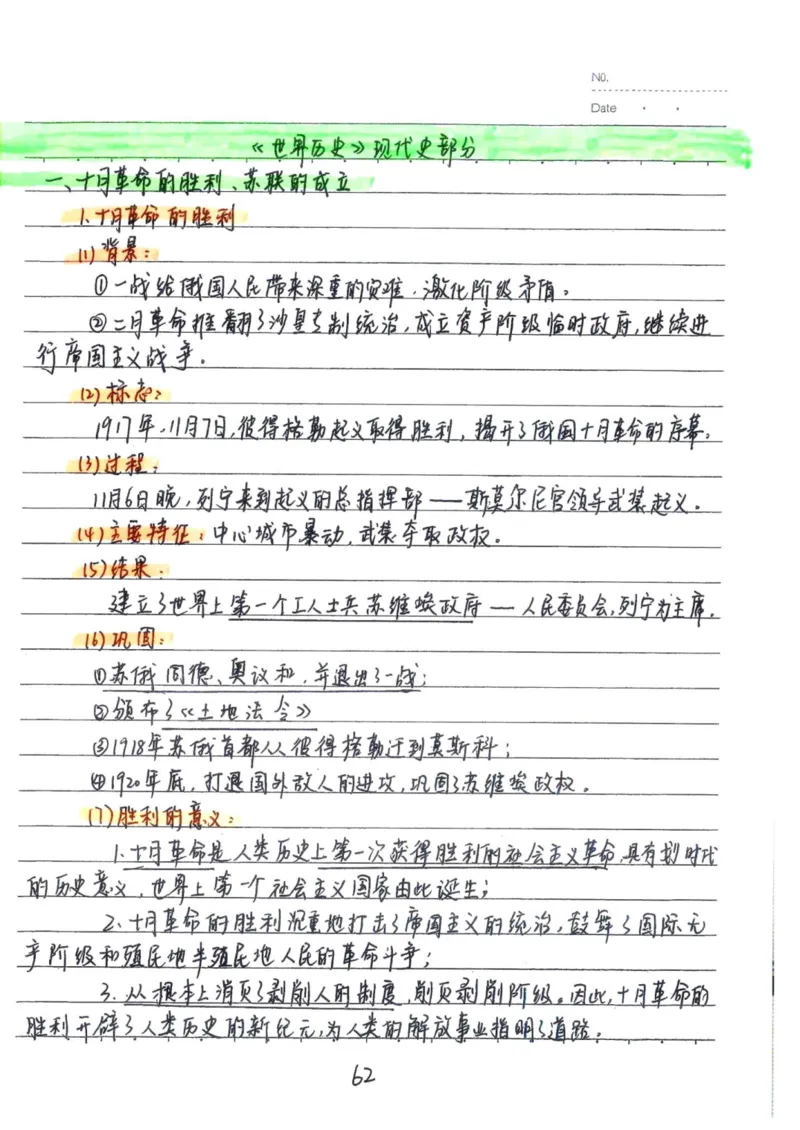 No.
Date
《世界历史》现代史部分
一、十月革命的胜利、苏联的成立
1.十月革命的胜利
(1)背景：
①一战给俄国人民带来深重的灾难，激化阶级矛盾。
②二月革命推翻了沙皇专制统治，成立资产阶级临时政府，继续进
行帝国主义战争。
(2)标志：
1917年，11月7日，彼得格勒起义取得胜利，揭开了俄国十月革命的序幕。
(3)过程：
11月6日晚，列宁来到起义的总指挥部——斯莫尔尼宫领导武装起义。
(4)主要特征：中心城市暴动，武装夺取政权。
(5)结果：
建立了世界上第一个工人士兵苏维埃政府——人民委员会，列宁为主席。
(6)巩固：
①苏俄同德、奥议和，并退出了一战；
②颁布了《土地法令》
③1918年苏俄首都从从彼得格勒迁到莫斯科；
④1920年底，打退国外敌人的进攻，巩固了苏维埃政权。
(7)胜利的意义：
1.十月革命是人类历史上第一次获得胜利的社会主义革命，具有划时代
的历史意义，世界上第一个社会主义国家由此诞生；
2.十月革命的胜利沉重地打击了帝国主义的统治，鼓舞了国际无
产阶级和殖民地半殖民地人民的革命斗争；
3.从根本上消灭了剥削人的制度，剥削阶级。因此，十月革命的
胜利开辟了人类历史的新纪元，为人类的解放事业指明了道路。
62